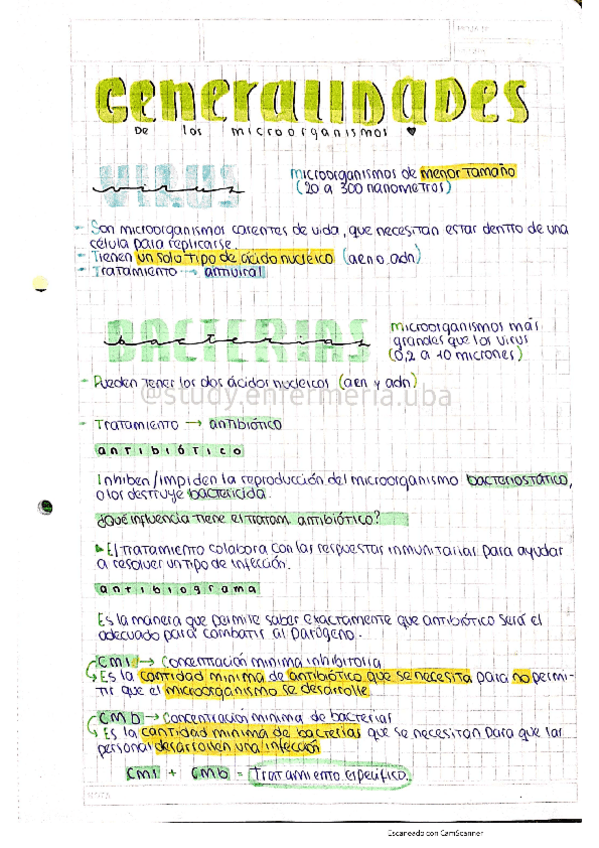 GENERALIDADES
De los microorganismos ♥
VIRUS
virus
microorganismos de menor tamaño
(20 a 300 nanometros)
- Son microorganismos carentes de vida, que necesitan estar dentro de una
célula para replicarse.
- Tienen un solo tipo de ácido nucleico (aen o adn)
- Tratamiento → antiviral
BACTERIAS
bacterias
microorganismos más
grandes que los virus
(0,2 a 10 micrones)
- Pueden tener los dos ácidos nucleicos (aen y adn)
@study.enfermeria.uba
- Tratamiento → antibiótico
antibiótico
Inhiben/impiden la reproducción del microorganismo bacteriostático,
o los destruye bactericida.
¿Qué influencia tiene el tratam. antibiótico?
El tratamiento colabora con las respuestas inmunitarias para ayudar
a resolver un tipo de infección.
antibiograma
Es la manera que permite saber exactamente que antibiótico será el
adecuado para combatir al patógeno.
CMI → Concentración minima inhibitoria
Es la cantidad minima de antibiótico que se necesita para no permi-
tir que el microorganismo se desarrolle.
CMb → Concentración minima de bacterias
Es la cantidad minima de bacterias que se necesitan para que las
personas desarrollen una infección
CMI + CMb = Tratamiento específico.
Escaneado con CamScanner